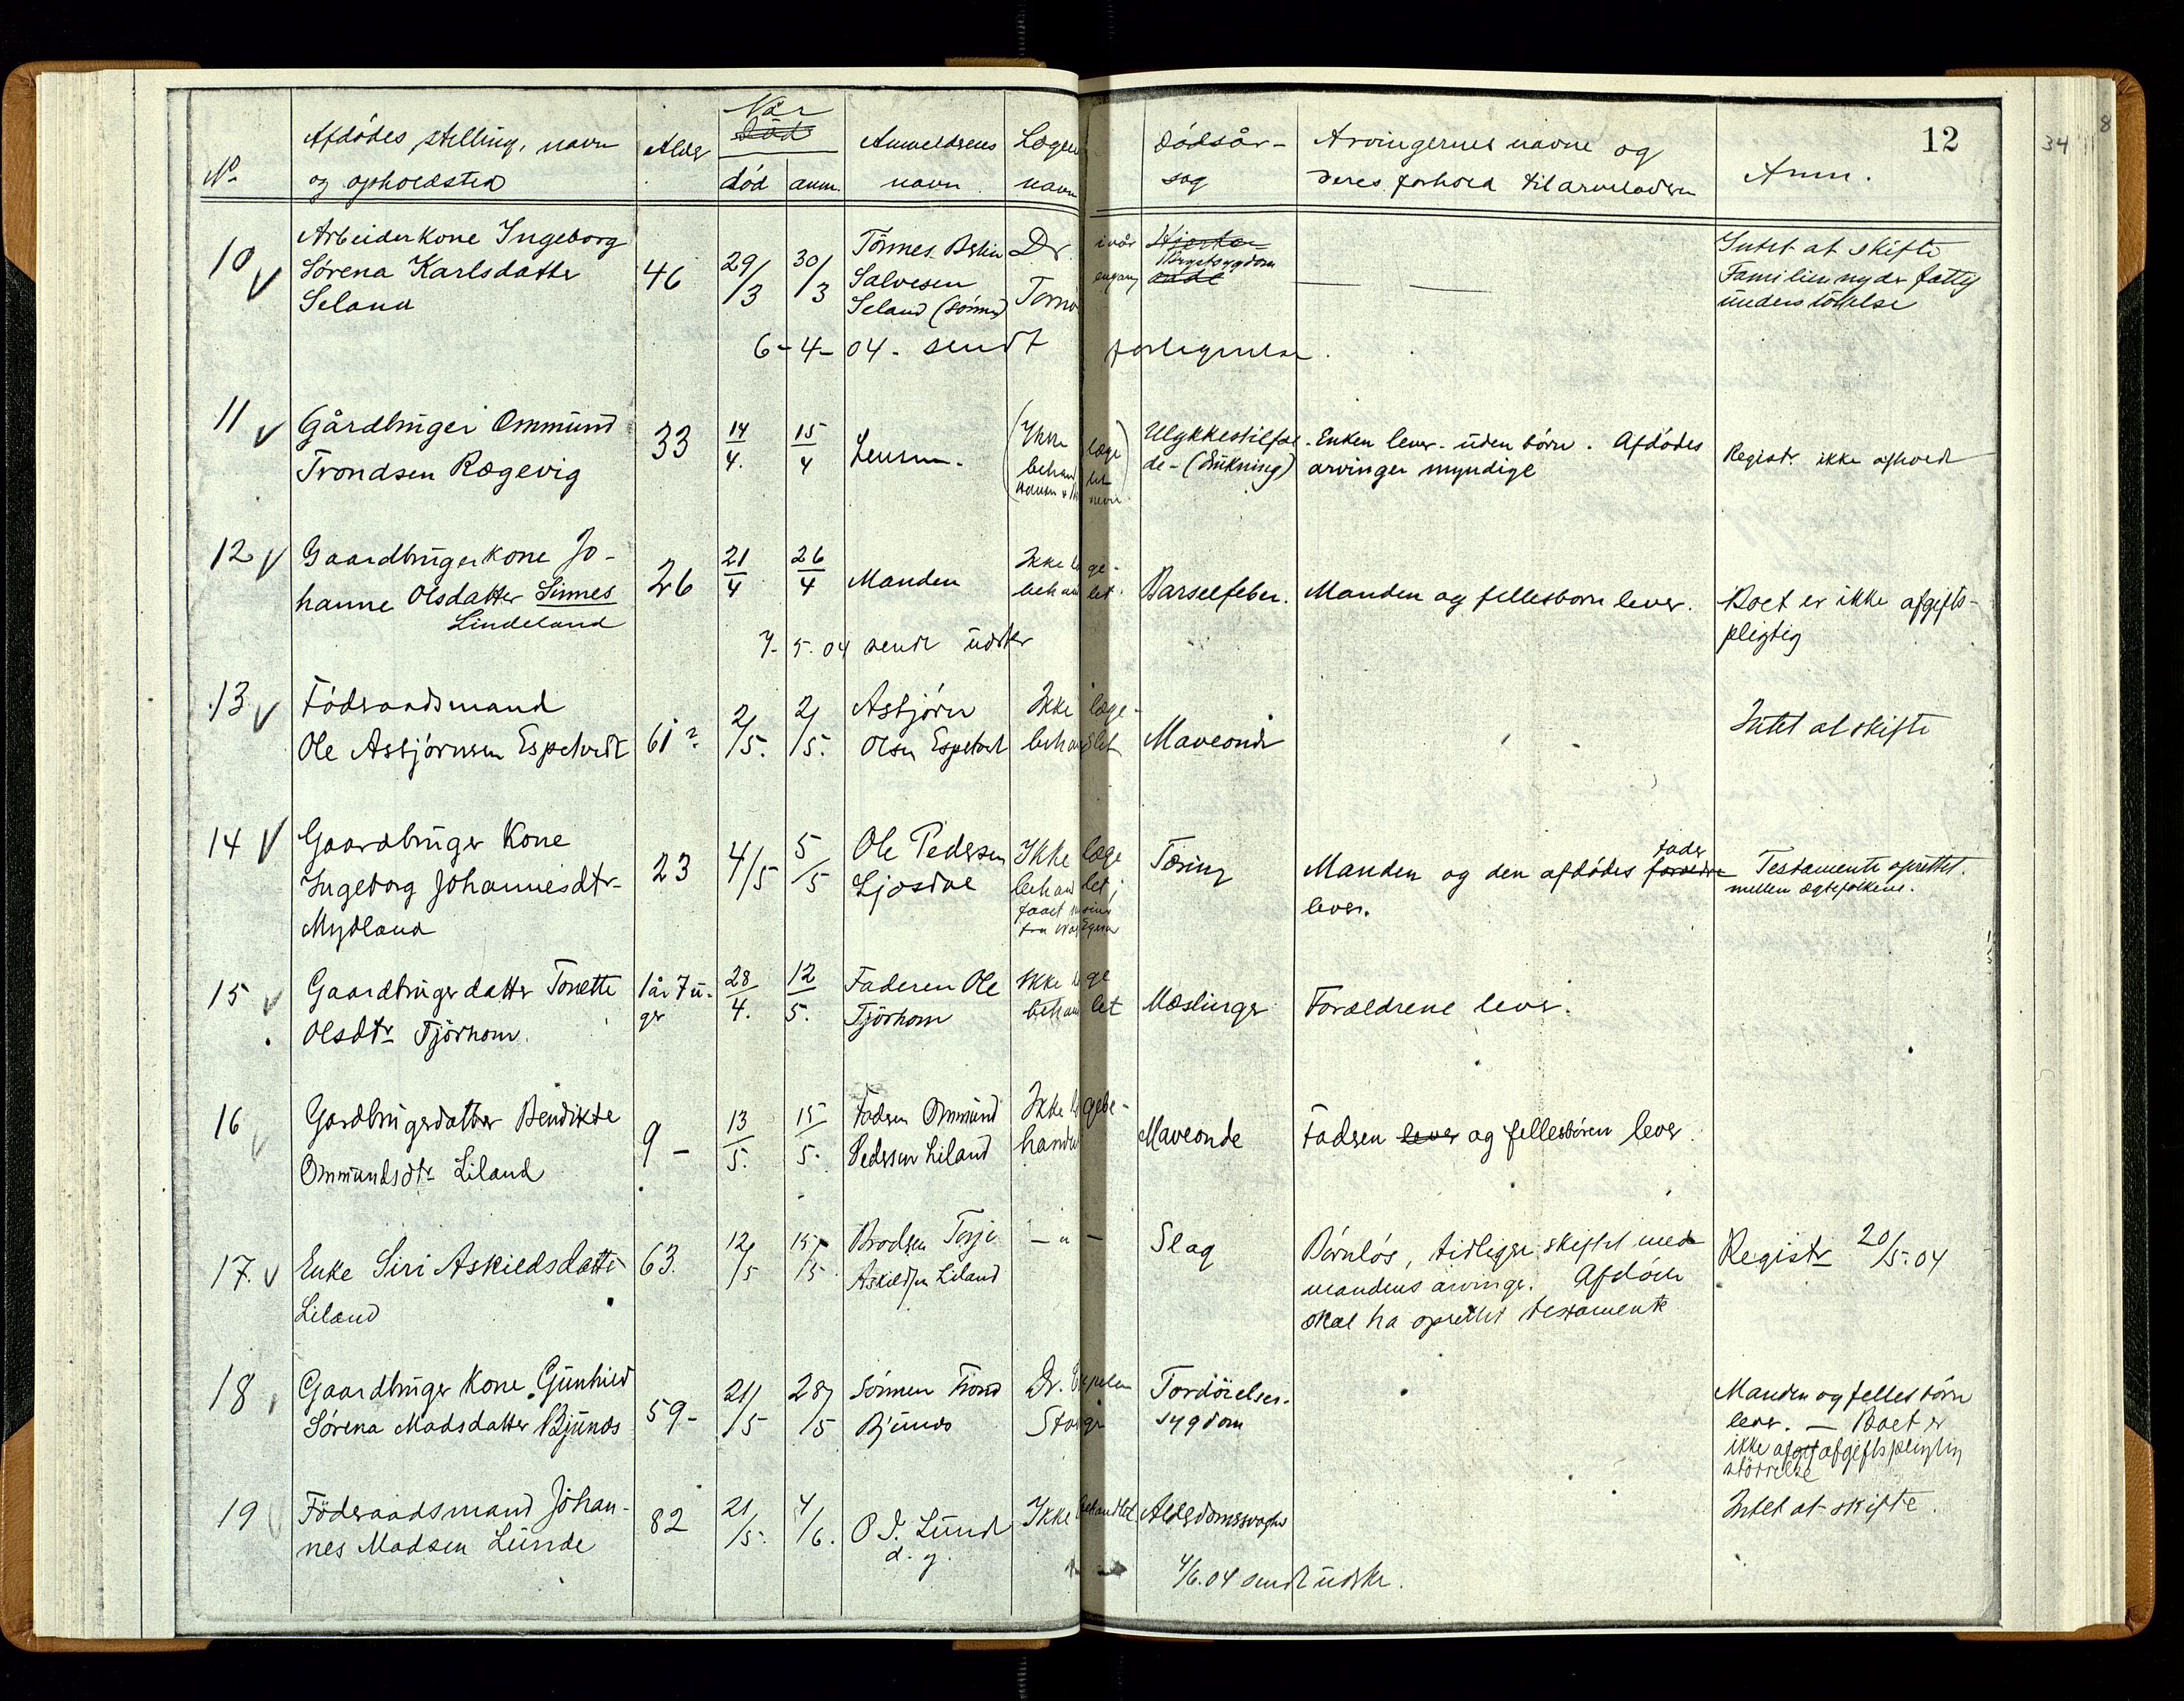 12
34
8
Når
Afdödes stilling, navn
Alder
död
Anmelderens
Læge
dødsår-
Arvingernes navne og
№
og opholdsted
död
anm.
navn
navn
sag
deres forhold til arveladeren
Anm.
10
Arbeiderkone Ingeborg
Sörena Karlsdatter
Seland
46
29/3
30/3
Tönnes
Salvesen
Seland (sönnen)
Dr.
Hjerte
Brystsygdom
onde
— —
Intet at skifte
Familien nyder fattig
understöttelse
6-4-04. sendt
11
Gårdbruger Ommund
Trondsen Rægevig
33
14/4.
15/4
Lensm.
(Ikke læge
behand let
Ulykkestilfæl
de- (Drukning)
Enken lever uden börn. Afdödes
arvinger myndige
Registr. ikke afholdt
12
Gaardbrugerkone Jo-
hanne Olsdatter Sinnes
Lindeland
26
21/4
26/4
Manden
Ikke læge-
behandlet.
Barselfeber.
Manden og fellesbörn lever.
Boet er ikke afgifts-
pligtig
7-5.04 sendt udskr
13
Föderaadsmand
Ole Asbjörnsen Espetvedt
61?
2/5.
2/5.
Asbjörn
Olsen Espetvedt
Ikke læge-
behandlet
Maveonde
Intet at skifte
14
Gaardbruger Kone
Ingeborg Johannesdtr
Mydland
23
4/5
5/5
Ole Pedersen
Ljosdal
Ikke læge
behandlet;
faaet
fra
Tæring
fader
Manden og den afdödes forældre
lever.
Testamente oprettet.
mellem ægtefolkene.
15
Gaardbrugerdatter Tonette
Olsdtr Tjörhom.
1år 7 u-
ger
28/4.
12/5.
Faderen Ole
Tjörhom
Ikke læge
behandlet
Mæslinger
Forældrene lever.
16
Gardbrugerdatter Bendikte
Ommundsdtr Liland
9 -
13/5.
15/5.
Faderen Ommund
Pedersen Liland
Ikke lægebe-
handlet
Maveonde
Faderen lever og fellesbören lever.
17.
Enke Siri Askieldsdatter
Liland
63.
12/5
15/5.
Broderen Terje
Askildsen Liland
— " —
Slag
Börnlös, tidligere skiftet med
mandens arvinger. Afdöde
skal ha oprettet testamente
Registr 20/5.04
18
Gaardbruger Kone Gunhild
Sörena Madsdatter Bjunes
59-
21/5
28/5
Sönnen Trond
Bjunes
Dr.
Fordöielses-
sygdom
Manden og felles börn
lever. — Boet er
ikke af afgiftspligtig
störrelse
19
Föderaadsmand Johan-
nes Madsen Lunde
82
21/5.
4/6.
P. T. Lunde
d. y.
Ikke behandlet
Alderdomssvaghed
Intet at skifte.
4/6.04 sendt udskr.